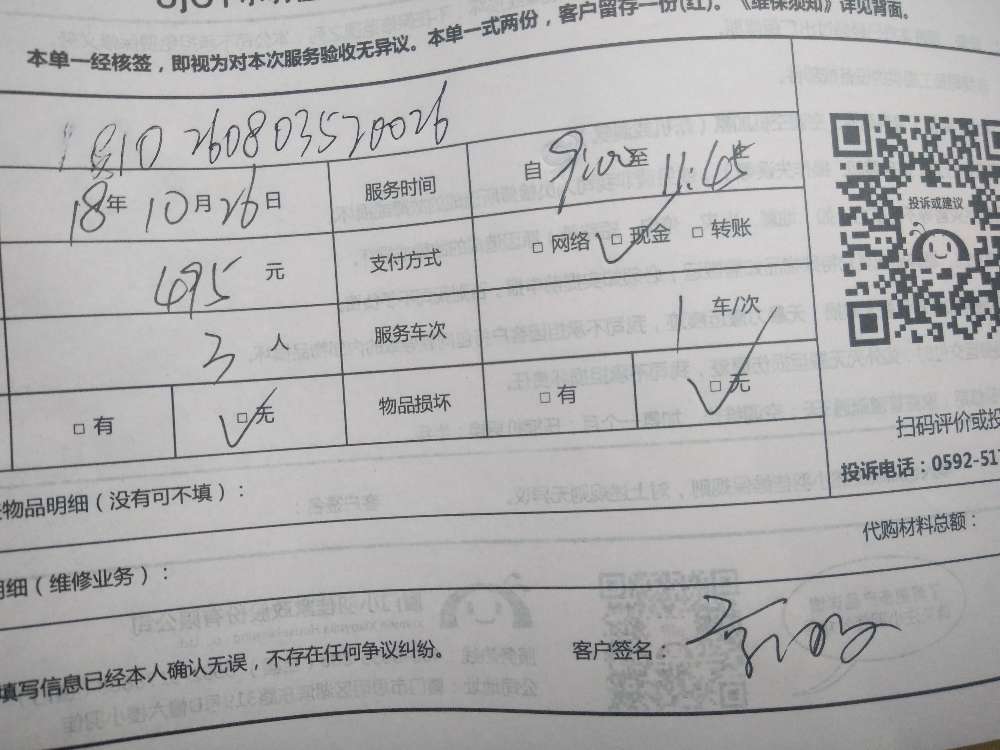 本单一经核签，即视为对本次服务验收无异议。本单一式两份，客户留存一份(红)。《维保须知》详见背面。
1810260803520026
18年10月26日 服务时间 自9:00至11:45
495元 支付方式 □网络 □现金 □转账
3人 服务车次 1车/次
□有 □无 物品损坏 □有 □无
投诉或建议
扫码评价或投
投诉电话：0592-517
物品明细（没有可不填）：
代购材料总额：
明细（维修业务）：
填写信息已经本人确认无误，不存在任何争议纠纷。 客户签名：